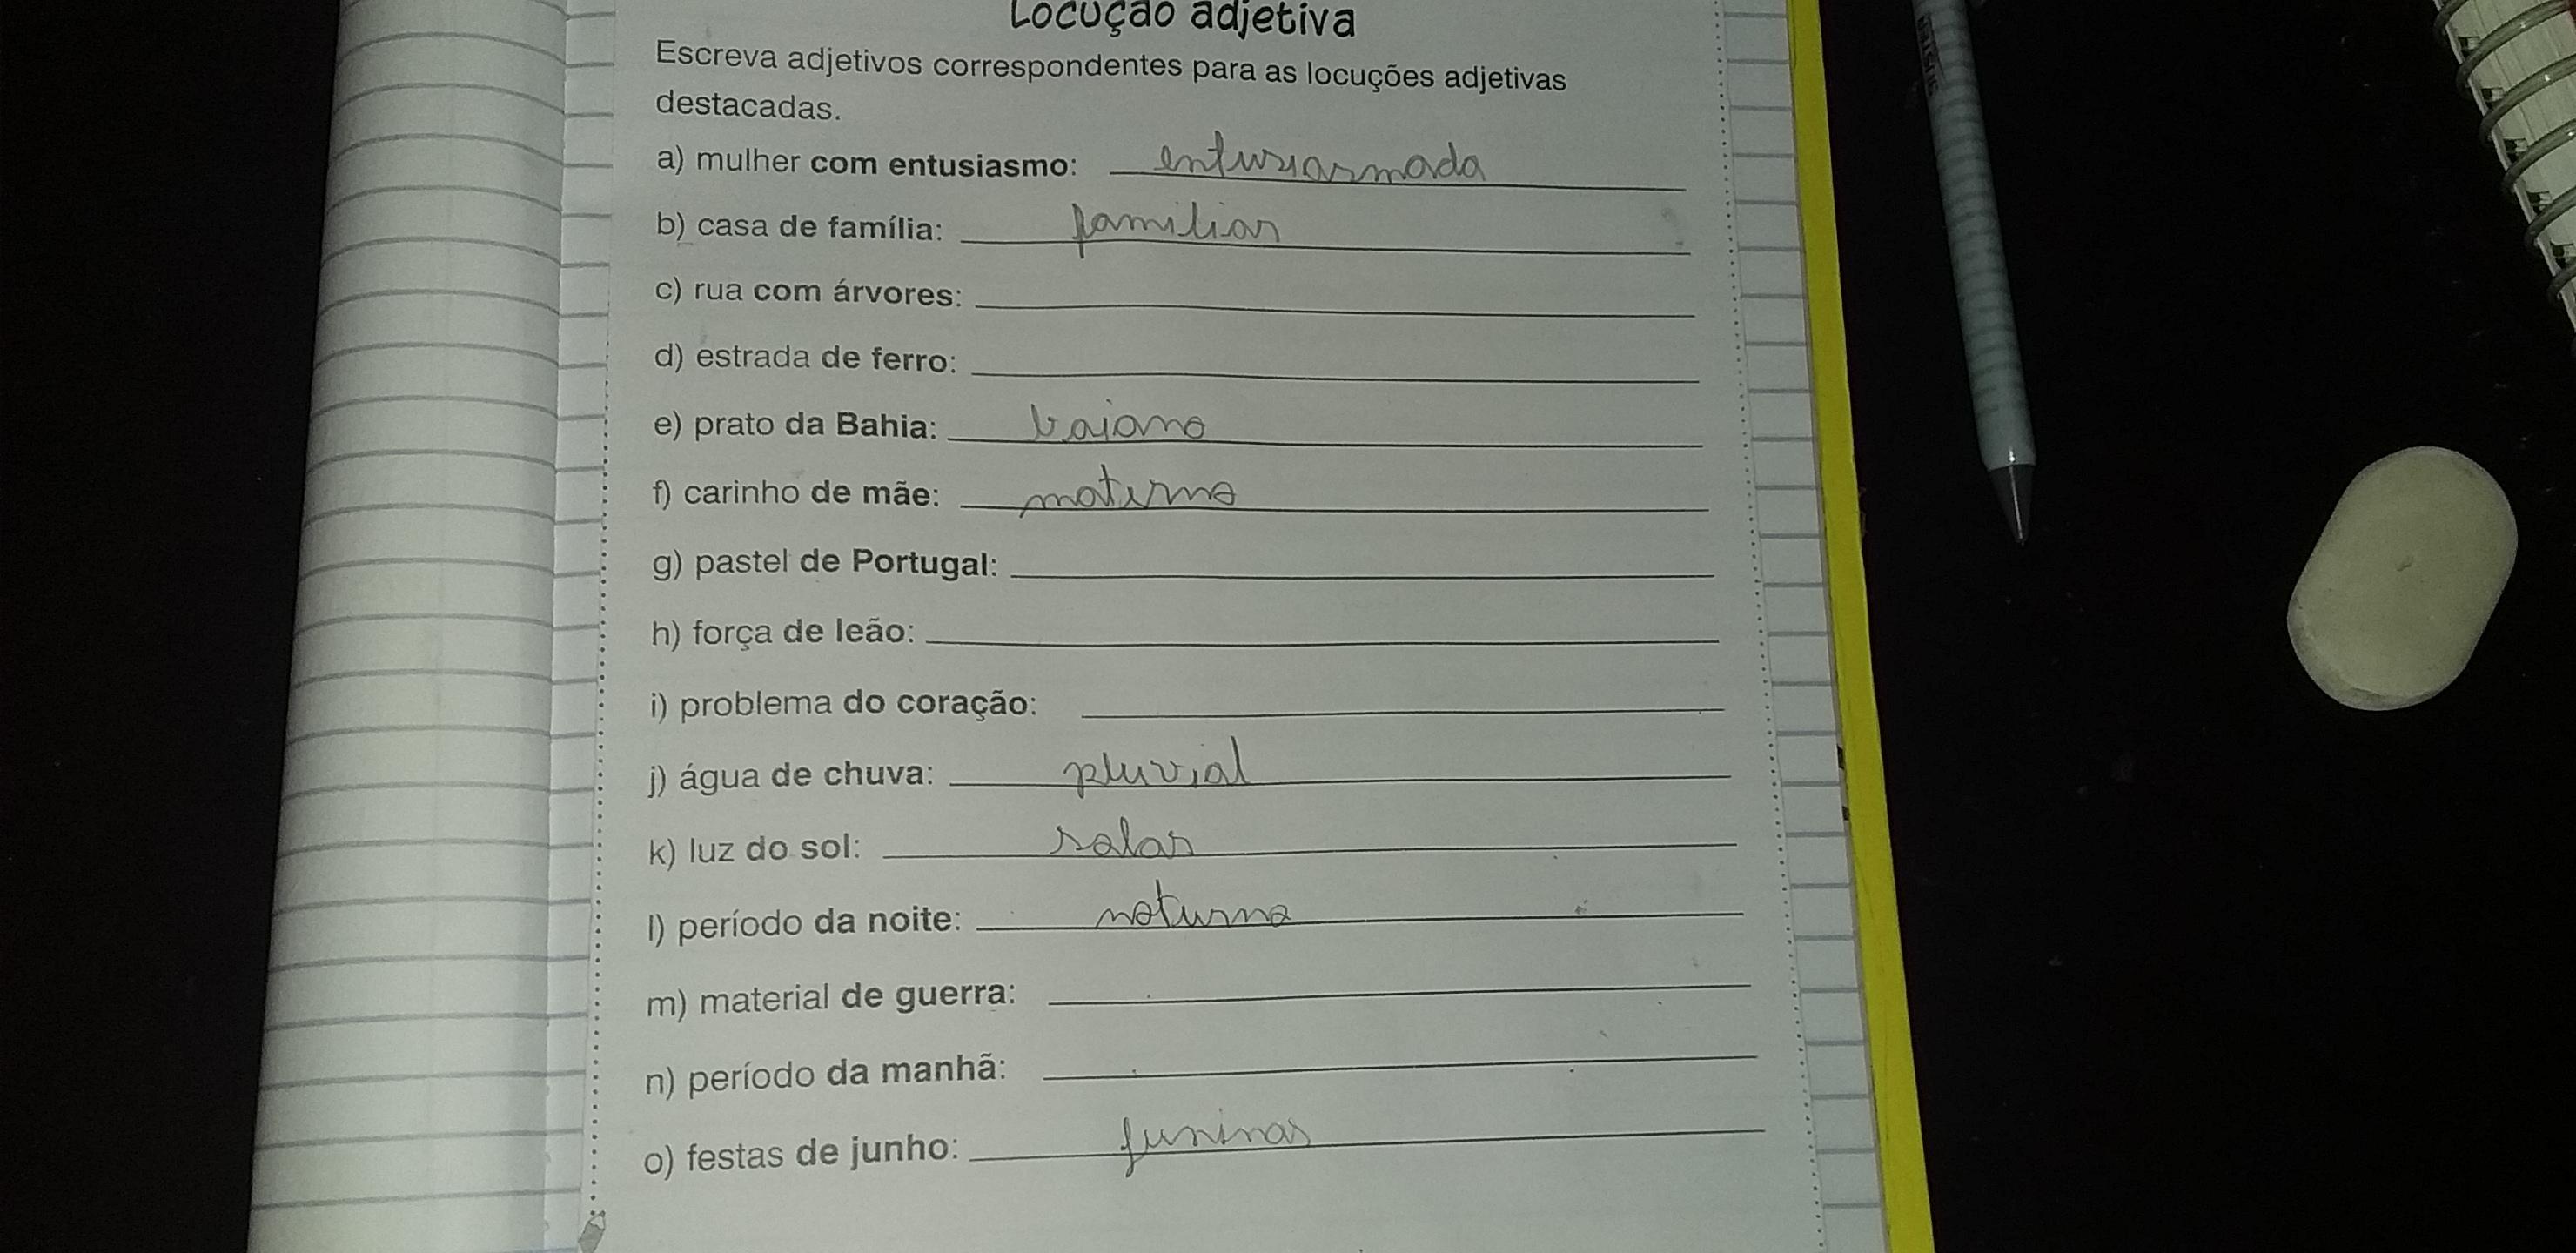 Locução adjetiva
Escreva adjetivos correspondentes para as locuções adjetivas
destacadas.
a) mulher com entusiasmo: entusiasmada
b) casa de família: familiar
c) rua com árvores:
d) estrada de ferro:
e) prato da Bahia: baiano
f) carinho de mãe: materno
g) pastel de Portugal:
h) força de leão:
i) problema do coração:
j) água de chuva: pluvial
k) luz do sol: solar
l) período da noite: noturno
m) material de guerra:
n) período da manhã:
o) festas de junho: juninas